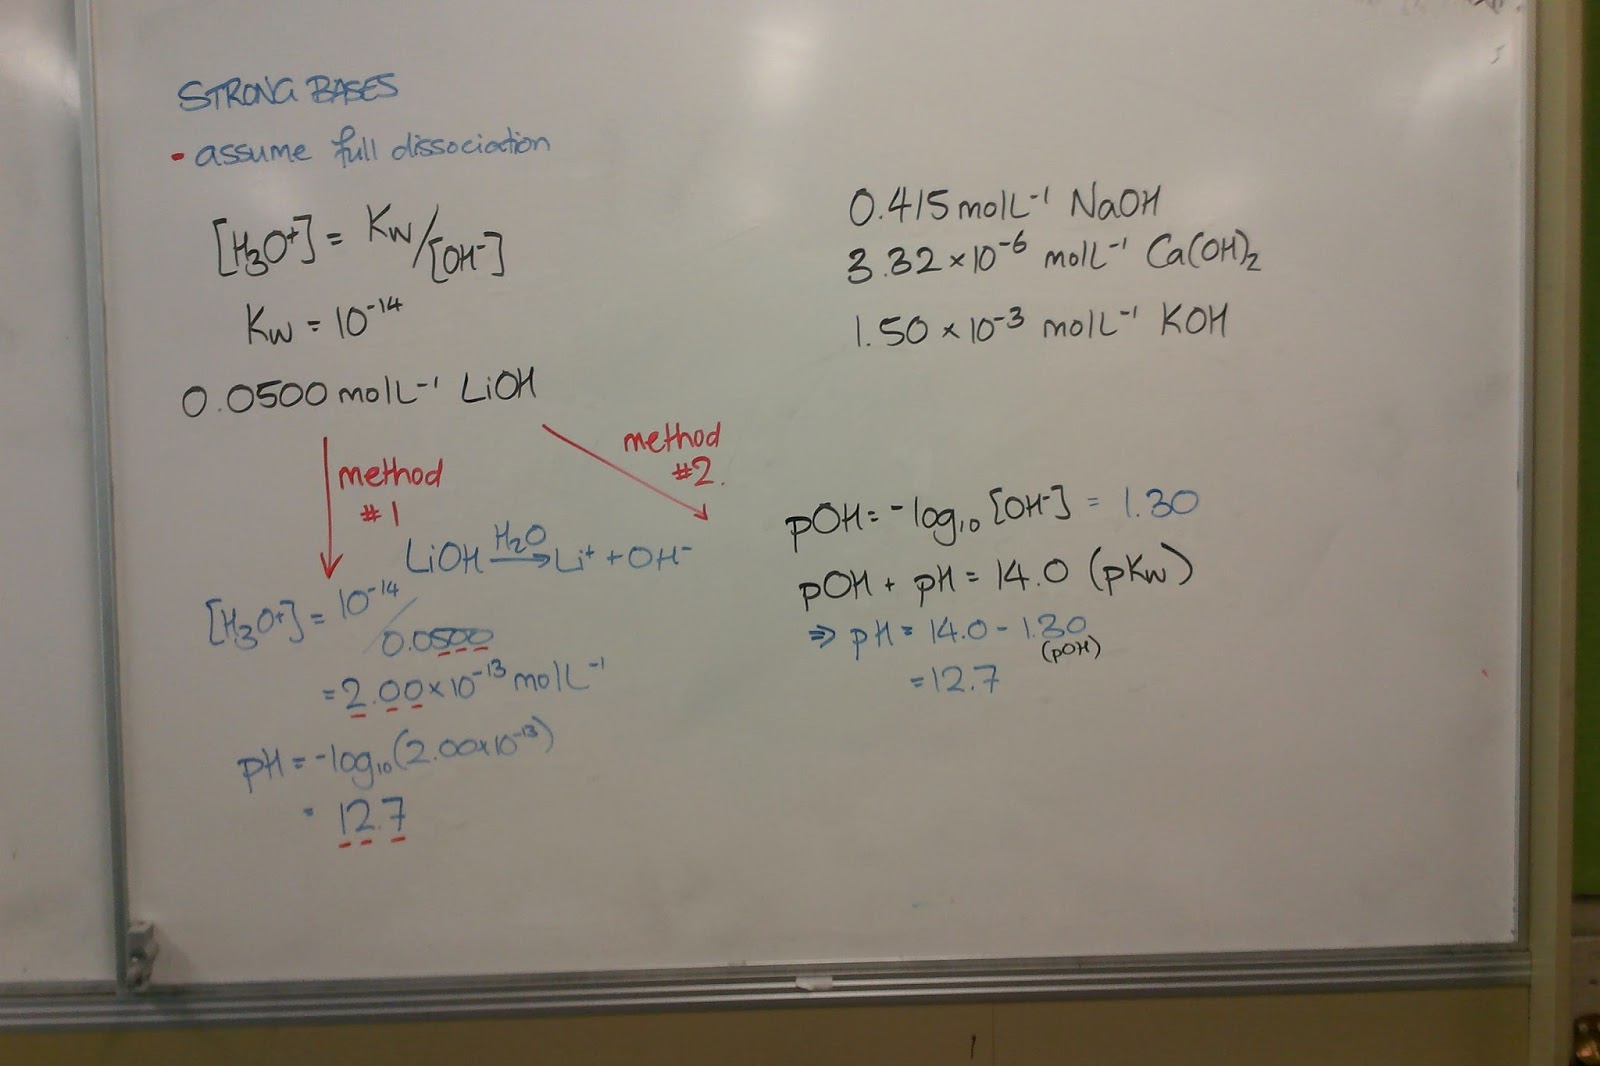 STRONG BASES
• assume full dissociation
[H₃O⁺] = Kw/[OH⁻]
Kw = 10⁻¹⁴
0.0500 molL⁻¹ LiOH
method
#1
LiOH H₂O→ Li⁺ + OH⁻
[H₃O⁺] = 10⁻¹⁴/0.0500
= 2.00×10⁻¹³ molL⁻¹
pH = -log₁₀(2.00×10⁻¹³)
= 12.7
0.415 molL⁻¹ NaOH
3.32×10⁻⁶ molL⁻¹ Ca(OH)₂
1.50×10⁻³ molL⁻¹ KOH
method
#2.
pOH = -log₁₀ [OH⁻] = 1.30
pOH + pH = 14.0 (pKw)
⇒ pH = 14.0 - 1.30
(pOH)
= 12.7